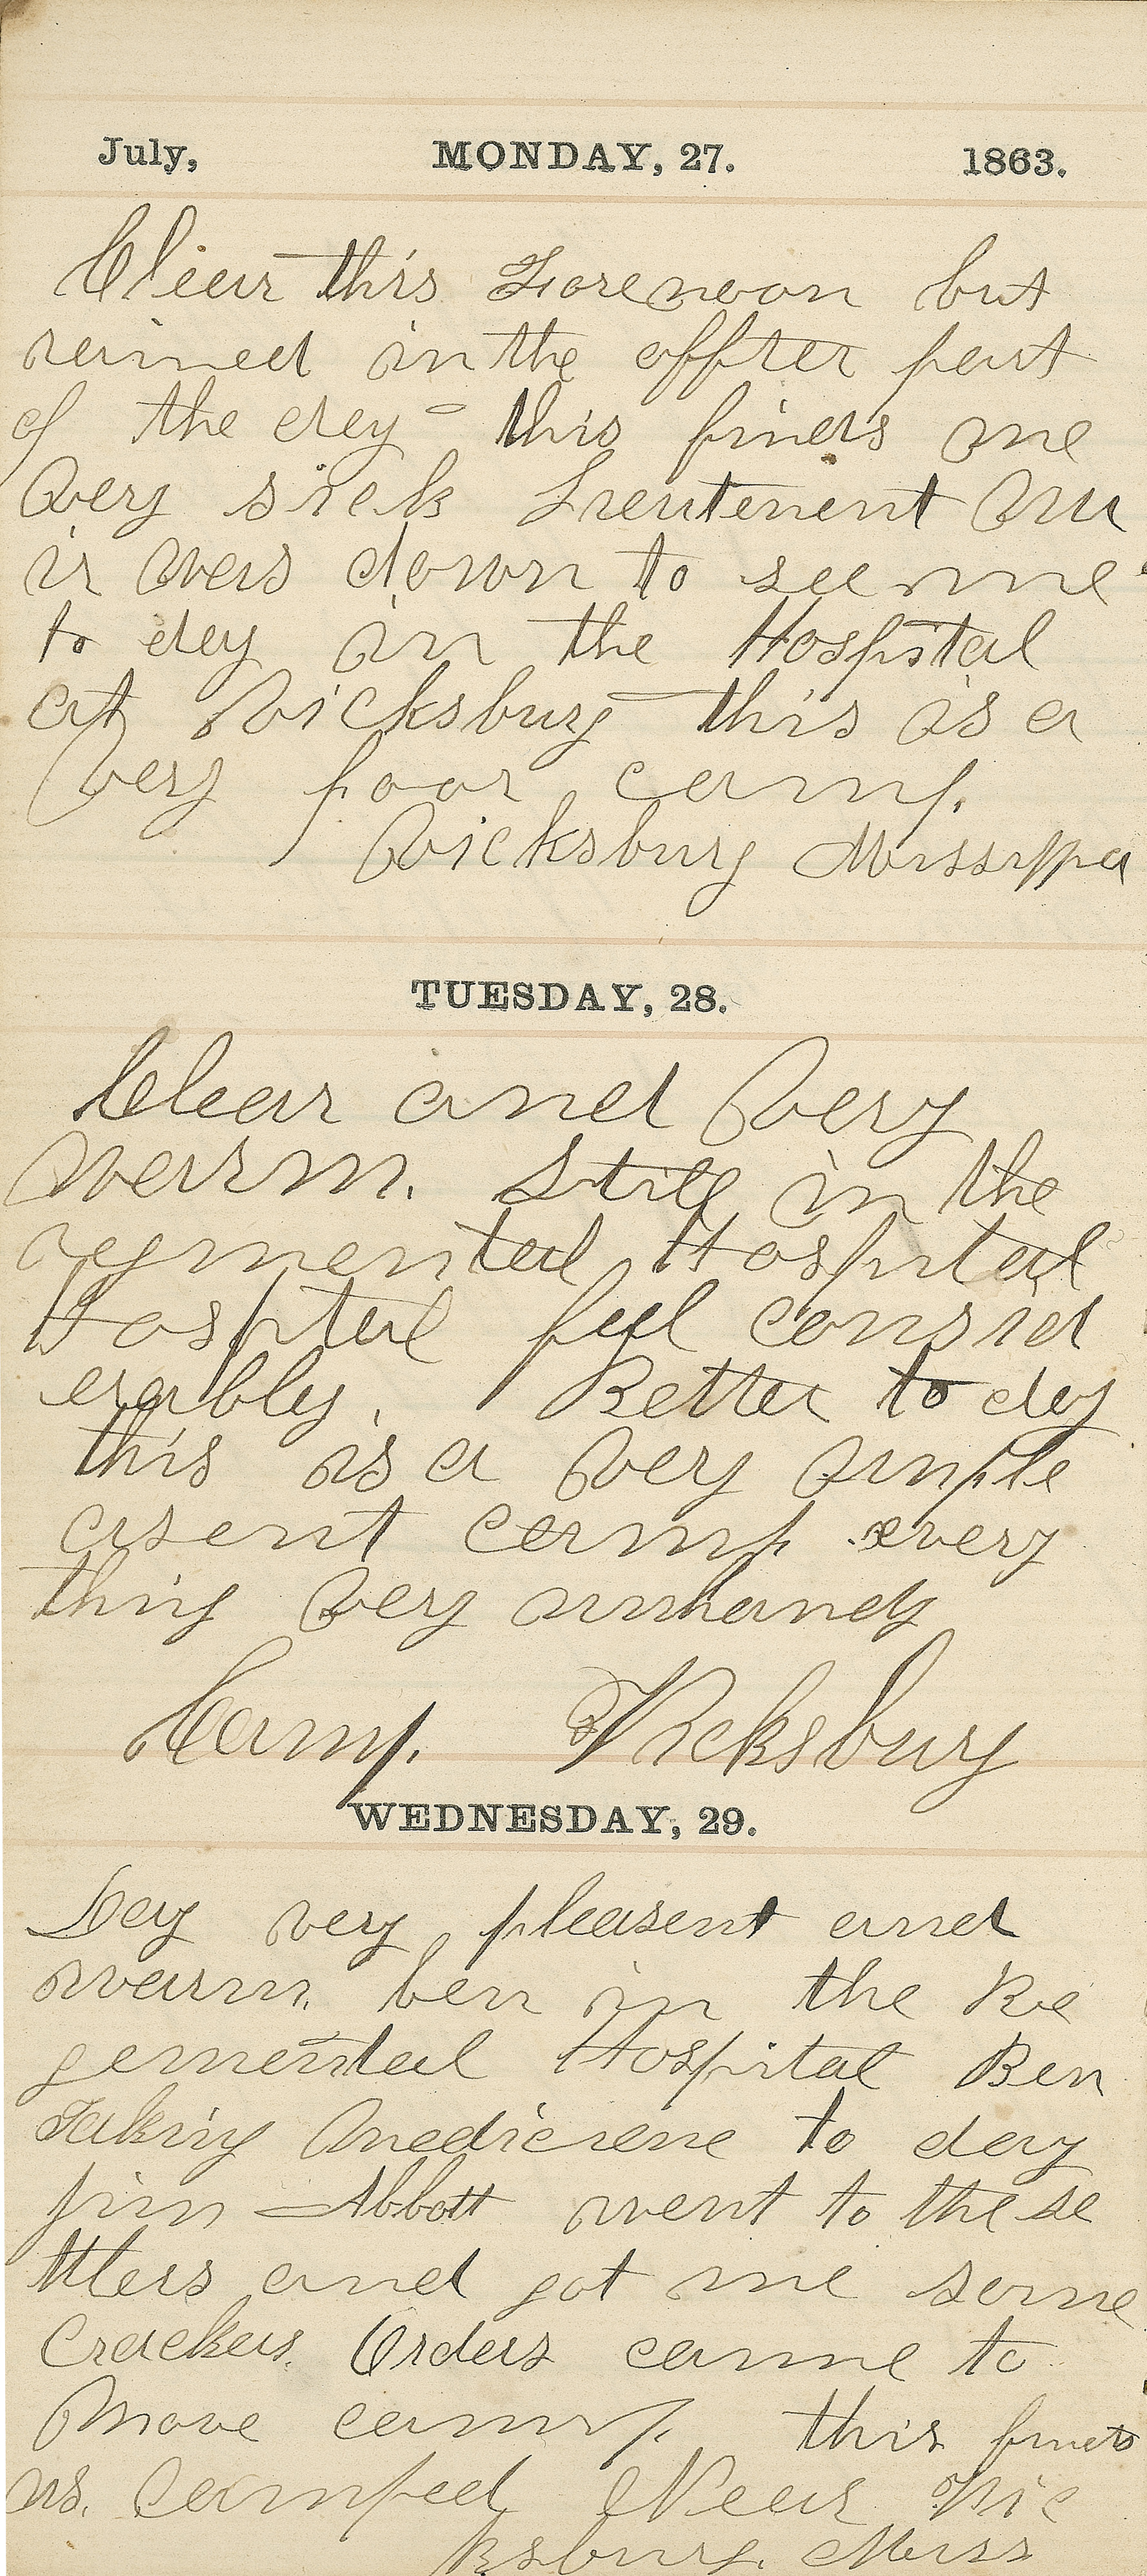 July, MONDAY, 27. 1863.
Clear this Forenoon but
rained in the affter part
of the day - this finds me
Very sick Lieutenent Mu
ir was down to see me
to day in the Hospital
at Vicksburg this is a
Very poor camp.
Vicksburg Mississippa
TUESDAY, 28.
Clear and Very
warm. Still in the
regmental Hospital
Hospital feel consid
erably. Better to day
this is a very unple
asent camp every
thing very unhandy
Camp. Vicksburg
WEDNESDAY, 29.
Day very pleasent and
warm. ben in the Re
gemental Hospital Ben
Taking Mediciene to day
Jim Abbott went to the se
ttlers and got me some
Crackers. Orders came to
Move camp. this finds
us. Camped Near Vic
ksburg. Miss